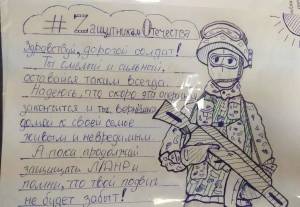 # Zащитникам Отечества
Здравствуй, дорогой солдат!
Ты смелый и сильный,
оставайся таким всегда.
Надеюсь, что скоро эта операция
закончится и ты вернёшься
домой к своей семье
живым и невредимым.
А пока продолжай
защищать ЛДНР и
помни, что твой подвиг
не будет забыт!